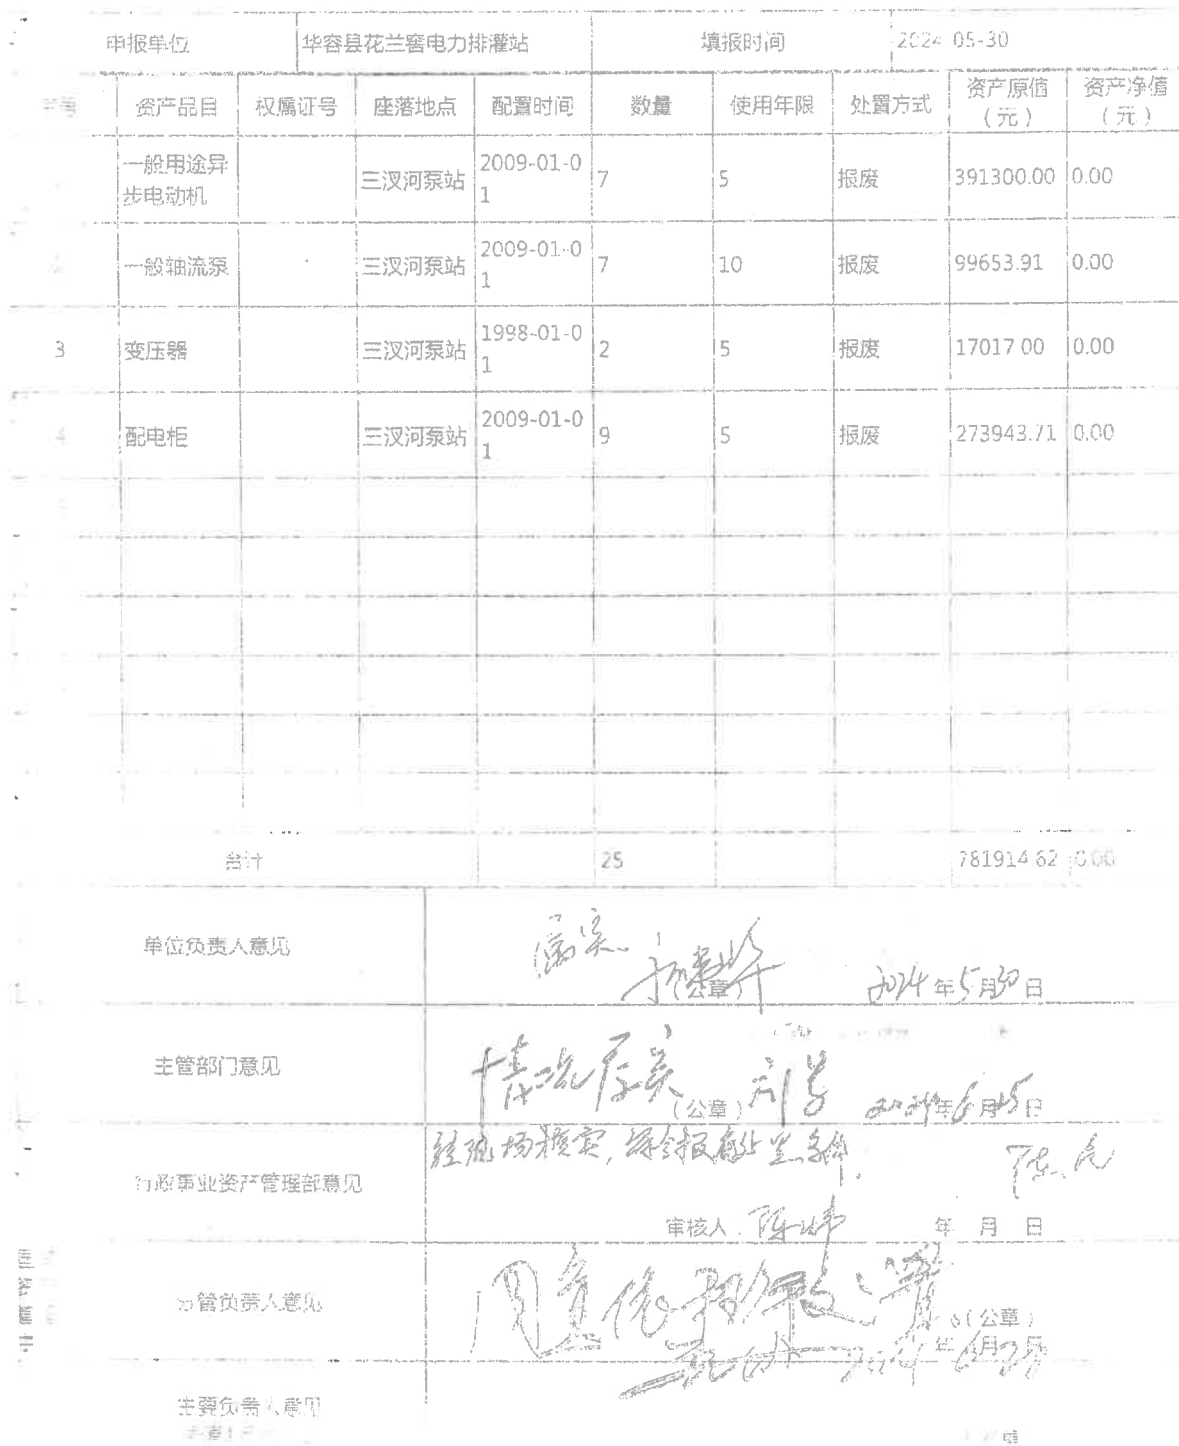 申报单位 华容县花兰窖电力排灌站 填报时间 2024 05-30
资产品目 权属证号 座落地点 配置时间 数量 使用年限 处置方式 资产原值（元） 资产净值（元）
一般用途异步电动机 三汊河泵站 2009-01-01 7 5 报废 391300.00 0.00
一般轴流泵 三汊河泵站 2009-01-01 7 10 报废 99653.91 0.00
3 变压器 三汊河泵站 1998-01-01 2 5 报废 17017 00 0.00
4 配电柜 三汊河泵站 2009-01-01 9 5 报废 273943.71 0.00
合计 25 781914.62 0.00
单位负责人意见 属实
（公章） 2024年5月30日
主管部门意见 情况属实
（公章） 2024年6月25日
行政事业资产管理部意见 经现场核实，符合报废处置条件。
审核人 年 月 日
分管负责人意见 同意
（公章）
年 月 日
主要负责人意见